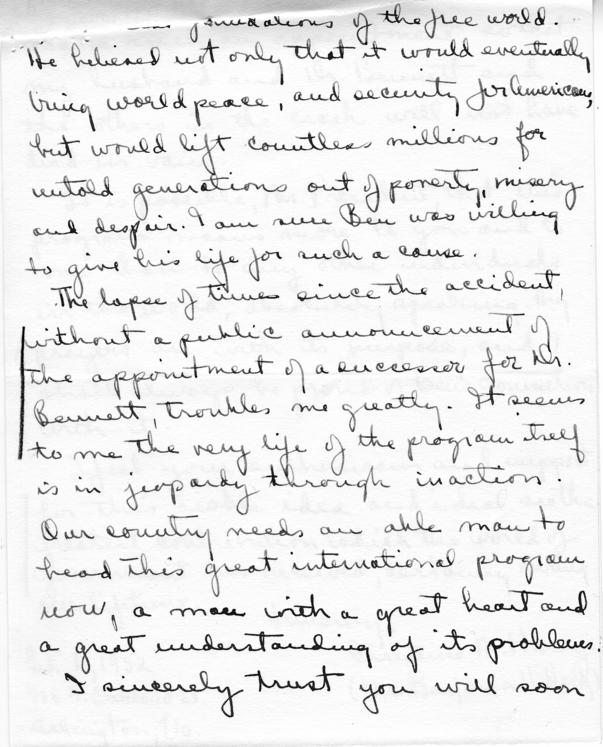 foundations of the free world.
He believed not only that it would eventually
bring world peace, and security for Americans,
but would lift countless millions for
untold generations out of poverty, misery
and despair. I am sure Ben was willing
to give his life for such a cause.
The lapse of time since the accident,
without a public announcement of
the appointment of a successor for Dr.
Bennett, troubles me greatly. It seems
to me the very life of the program itself
is in jeopardy through inaction.
Our country needs an able man to
head this great international program
now, a man with a great heart and
a great understanding of its problems.
I sincerely trust you will soon